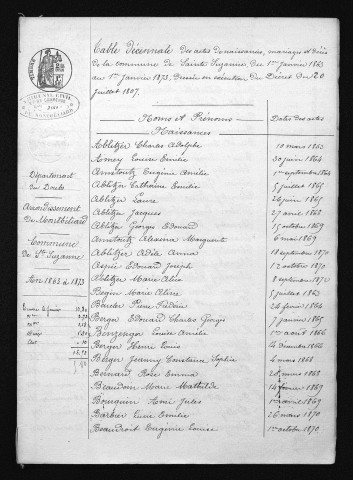 Table Décennale des actes de naissances, mariages et décès
de la commune de Sainte Suzanne, du 1er janvier 1863
au 1er Janvier 1873, dressée en exécution du Décret du 20
Juillet 1807.
Noms et Prénoms
Dates des actes
Naissances
Département
du Doubs
Arrondissement
de Montbéliard
Commune
de Ste Suzanne
1863 à 1873
Abblitzer Charles Adolphe 10 mars 1863
Amey Louise Emilie 30 juin 1864
Amstoutz Eugénie Amélie 1er septembre 1864
Ablitzer Catherine Emilie 5 juillet 1865
Ablitzer Laure juin 1865
Ablitzer Jacques 27 avril 1868
Ablitzer Georges Edouard 15 octobre 1869
Amstoutz Alexina Marguerite 6 mai 1869
Ablitzer Adèle Anna 18 septembre 1870
Edouard Joseph 12 octobre 1870
Ablitzer Marie Alice 8 septembre
Marie Aline 5 juillet 1863
24 février 1864
Berger Edouard Charles Georges 7 janvier 1865
Amélie 1er août 1866
Berger Henri Louis 4 Décembre 1866
Berger Jeanny Constance Sophie 4 mars 1868
Bernard Rose Emma 28 mars 1868
Beaudoin Marie Mathilde 14 février 1869
Bourquin Ami Jules 1er avril 1869
Barbier Lucie Emilie 26 mars 1870
Beaudroit Eugénie Louise 1er octobre 1870